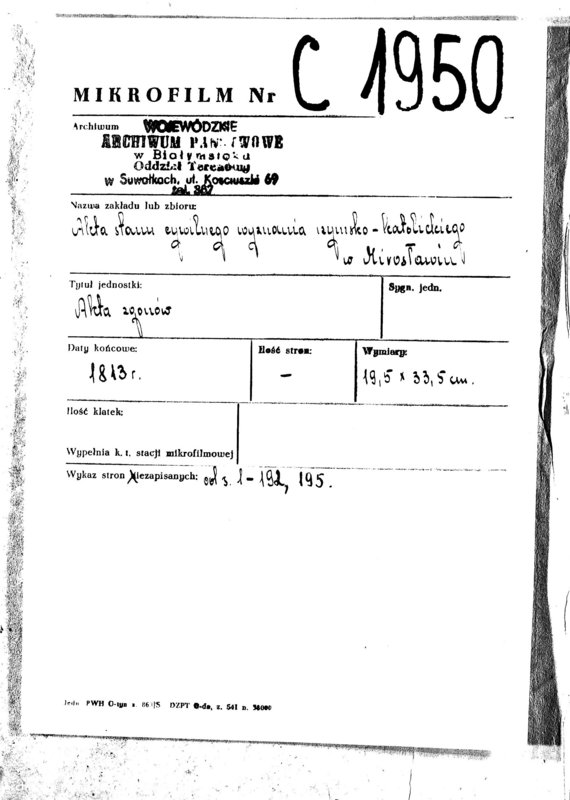 MIKROFILM Nr C 1950
Archiwum WOJEWÓDZKIE
ARCHIWUM PAŃSTWOWE
w Białymstoku
Oddział Terenowy
w Suwałkach, ul. Kościuszki 69
tel. 367
Nazwa zakładu lub zbioru:
Akta stanu cywilnego wyznania rzymsko-katolickiego
w Mirosławiu
Tytuł jednostki:
Sygn. jedn.
Akta zgonów
Daty końcowe:
Ilość stron:
Wymiary:
1813 r.
–
19,5 x 33,5 cm.
Ilość klatek:
Wypełnia k. t. stacji mikrofilmowej
Wykaz stron niezapisanych: od s. 1-192, 195.
PWH DZPT z. 541 n.